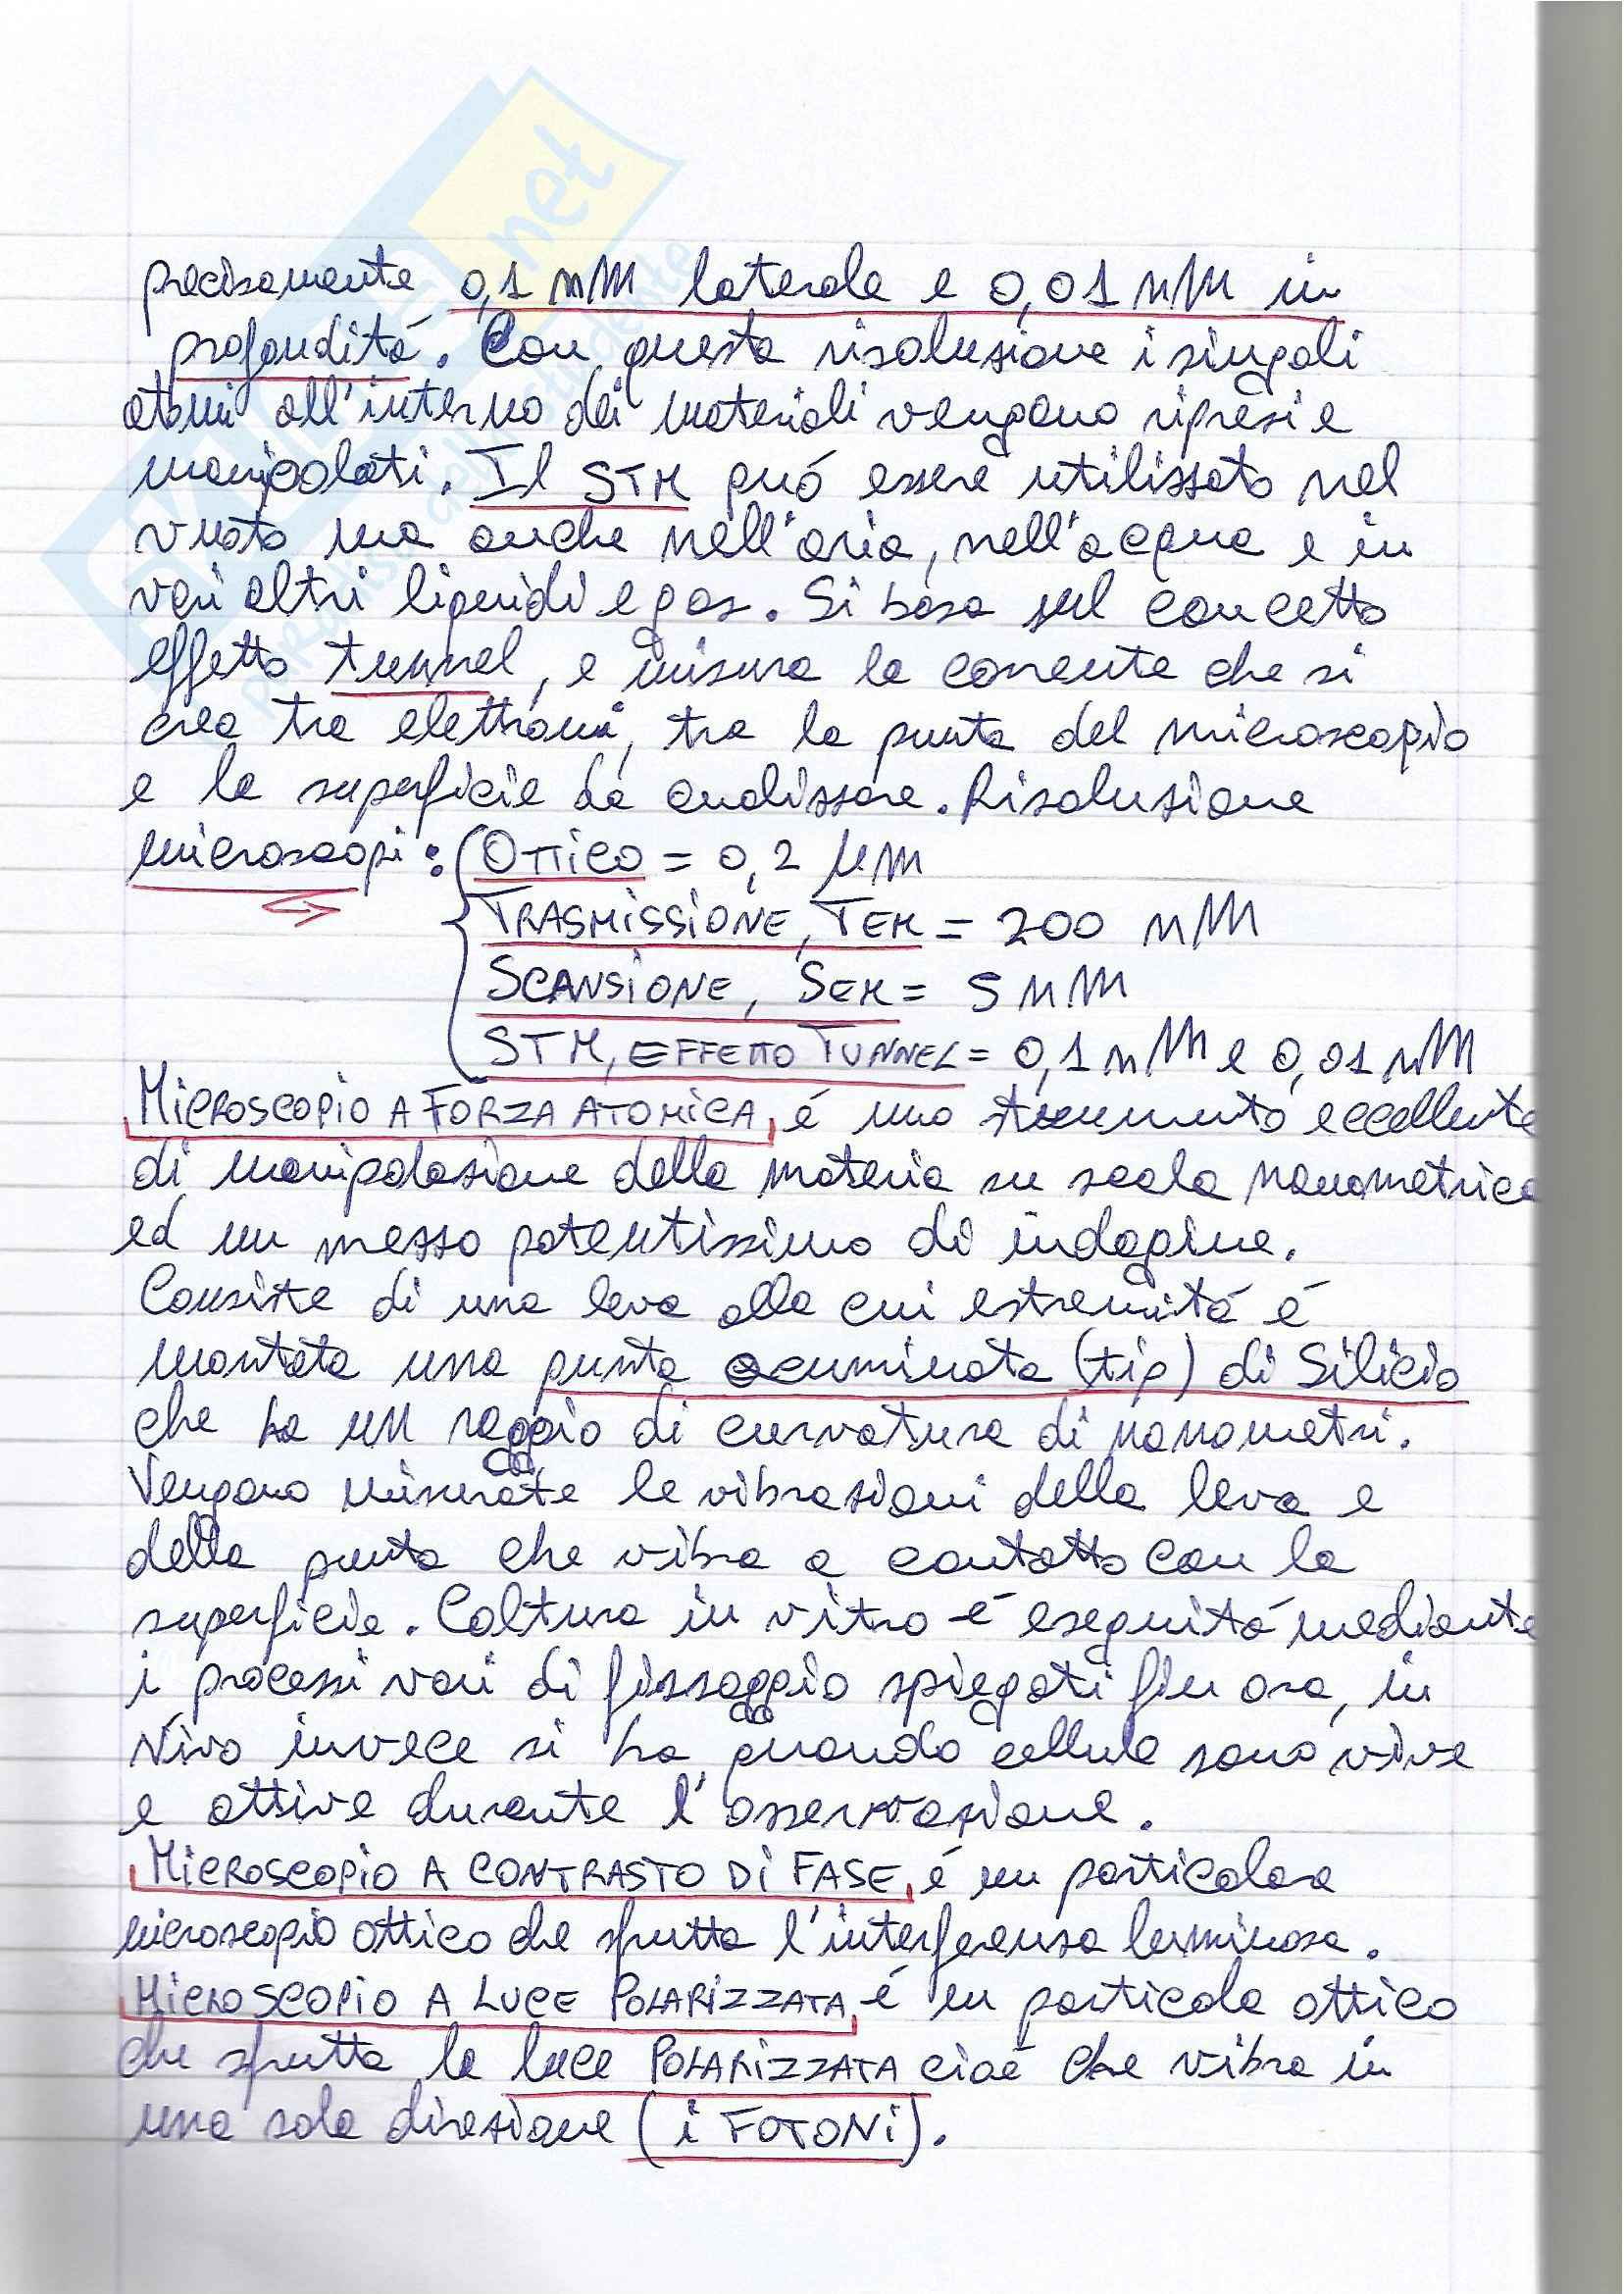 precisamente 0,1 nM laterale e 0,01 nM in
profondità. Con questa risoluzione i singoli
atomi all'interno dei materiali vengono ripresi e
manipolati. Il STM può essere utilizzato nel
vuoto ma anche nell'aria, nell'acqua e in
vari altri liquidi e gas. Si basa sul concetto
effetto tunnel, e misura la corrente che si
crea tra elettroni, tra la punta del microscopio
e la superficie da analizzare. Risoluzione
microscopi: OTTICO = 0,2 µM
TRASMISSIONE, TEM = 200 nM
SCANSIONE, SEM = 5 nM
STM, EFFETTO TUNNEL = 0,1 nM e 0,01 nM
MICROSCOPIO A FORZA ATOMICA, é uno strumento eccellente
di manipolazione della materia su scala nanometrica
ed un mezzo potentissimo di indagine.
Consiste di una leva alla cui estremità é
montata una punta acuminata (tip) di Silicio
che ha un raggio di curvatura di nanometri.
Vengono misurate le vibrazioni della leva e
della punta che vibra a contatto con la
superficie. Coltura in vitro é eseguità mediante
i processi vari di fissaggio spiegati fin ora, in
vivo invece si ha quando cellule sono vive
e attive durante l'osservazione.
MICROSCOPIO A CONTRASTO DI FASE, é un particolare
microscopio ottico che sfrutta l'interferenza luminosa.
MICROSCOPIO A LUCE POLARIZZATA, é un particola ottico
che sfrutta la luce POLARIZZATA cioé che vibra in
una sola direzione (i FOTONI).